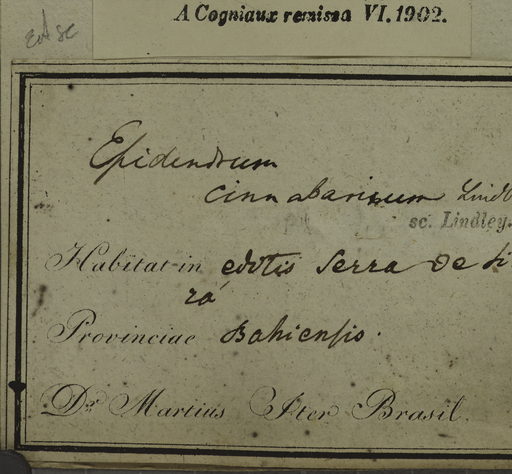 A Cogniaux remissa VI. 1902.
Epidendrum
cinnabarinum Lindl
sc. Lindley.
Habitat in editis Serra de Si
ra
Provinciae Bahiensis.
Dr. Martius Iter Brasil.